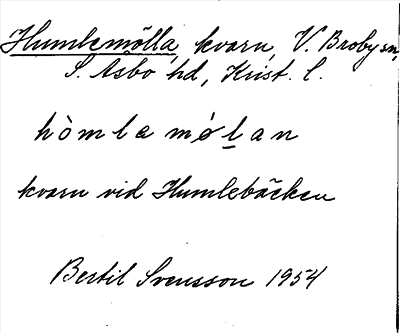 Humlemölla, kvarn, V. Broby sn,
S. Åsbo hd, Krist. l.
hòmlamølan
kvarn vid Humlebäcken
Bertil Svensson 1954